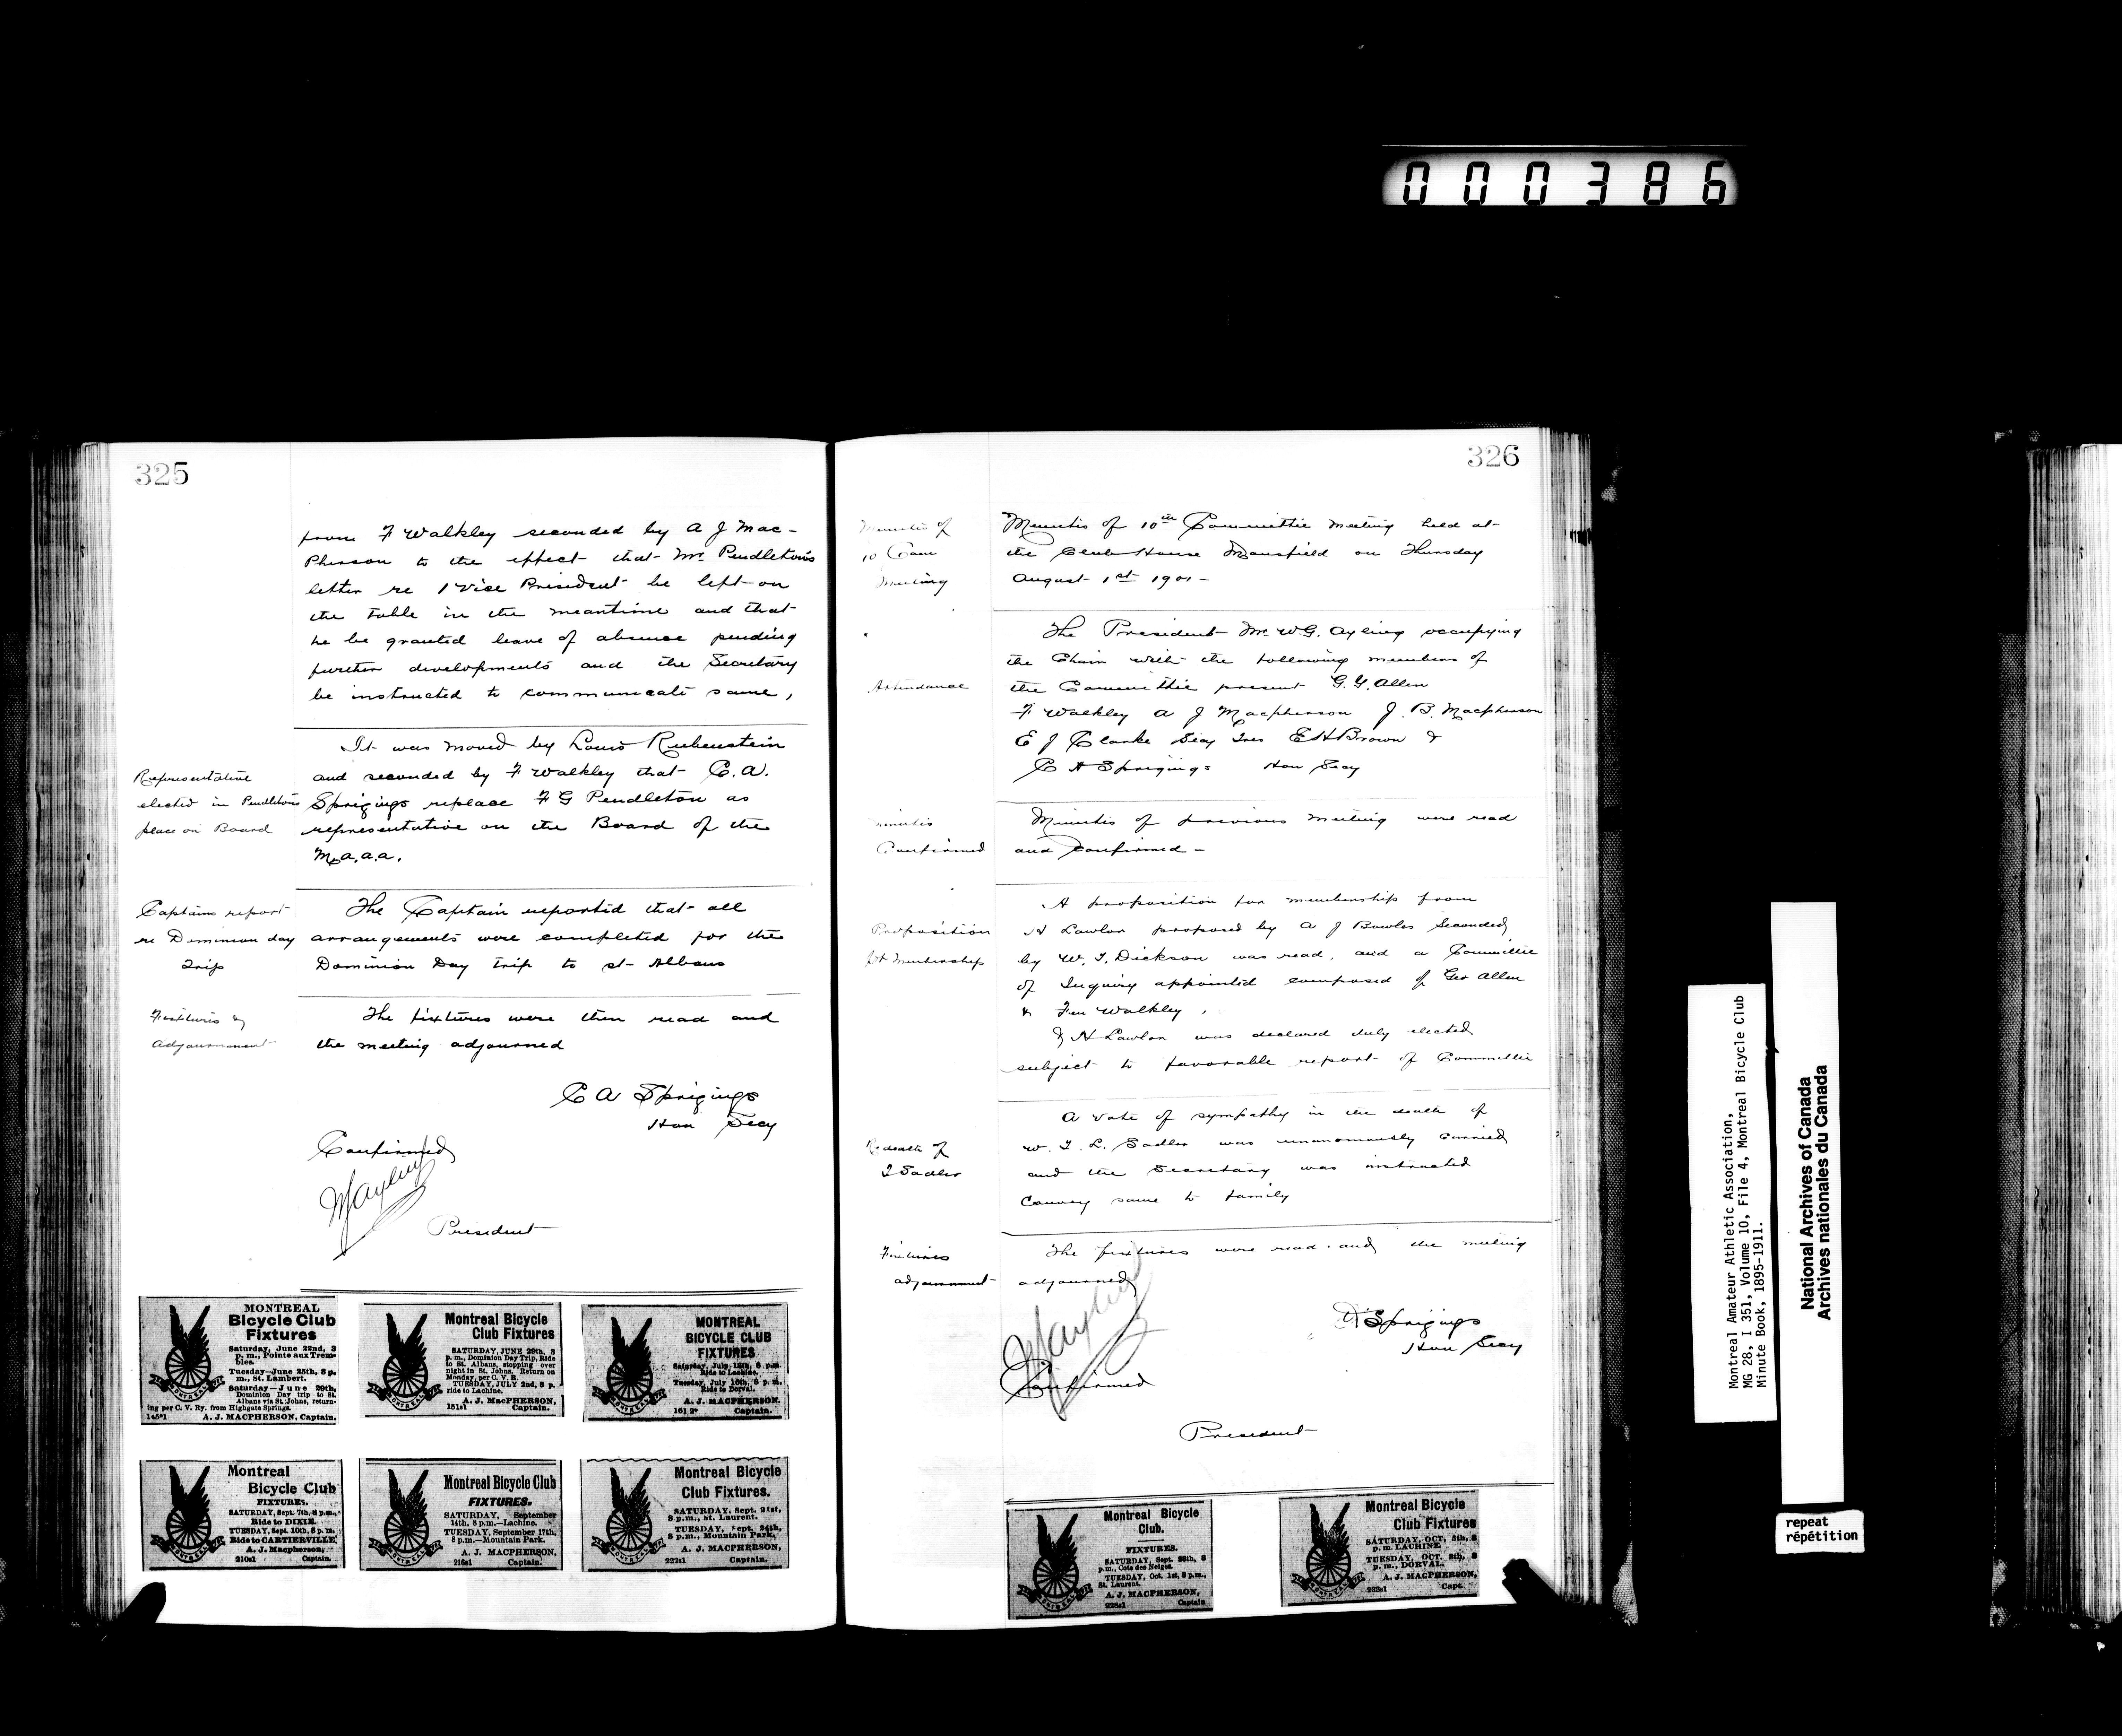 000386
325
from F Walkley seconded by A J Mac-
Pherson to the effect that Mr Pendleton's
letter re 1 Vice President be left on
the table in the meantime and that
he be granted leave of absence pending
further developments and the Secretary
be instructed to communicate same,
It was moved by Louis Rubenstein
Representative
and seconded by F Walkley that C.A.
elected in Pendletons
Sprigings replace F G Pendleton as
place on Board
representative on the Board of the
M.a.a.a.
Captains report
The Captain reported that all
re Dominion day
arrangements were completed for the
Trip
Dominion Day trip to St Albans
Fixtures &
The fixtures were then read and
adjournment
the meeting adjourned
C A Sprigings
Hon Secy
Confirmed
W Ayling
President
MONTREAL
Bicycle Club
Fixtures
Saturday, June 22nd, 3
p. m., Pointe aux Trem-
bles.
Tuesday—June 25th, 8 p.
m., St. Lambert.
Saturday—June 29th,
Dominion Day trip to St.
Albans via St. Johns, return-
ing per C. V. Ry. from Highgate Springs.
145*1 A. J. MACPHERSON, Captain.
Montreal Bicycle
Club Fixtures
SATURDAY, JUNE 29th, 3
p. m., Dominion Day Trip, Ride
to St. Albans, stopping over
night in St. Johns. Return on
Monday, per C. V. R.
TUESDAY, JULY 2nd, 8 p.
ride to Lachine.
A. J. MacPHERSON,
151s1 Captain.
MONTREAL
BICYCLE CLUB
FIXTURES
Saturday, July 13th, 3 p.m.
Ride to Lachine.
Tuesday, July 16th, 8 p. m.
Ride to Dorval.
A. J. MACPHERSON.
161 2* Captain.
Montreal
Bicycle Club
FIXTURES.
SATURDAY, Sept. 7th, 3 p.m.,
Ride to DIXIE.
TUESDAY, Sept. 10th, 8 p. m.
Ride to CARTIERVILLE
A. J. Macpherson,
210s1 Captain.
Montreal Bicycle Club
FIXTURES.
SATURDAY, September
14th, 3 p.m.—Lachine.
TUESDAY, September 17th,
8 p.m.—Mountain Park.
A. J. MACPHERSON,
216s1 Captain.
Montreal Bicycle
Club Fixtures.
SATURDAY, Sept. 21st,
3 p.m., St. Laurent.
TUESDAY, Sept. 24th,
8 p.m., Mountain Park.
A. J. MACPHERSON,
222s1 Captain.
326
Minutes of
Minutes of 10th Committie Meeting held at
10 Com
the Club House Mansfield on Thursday
Meeting
August 1st 1901 -
The President Mr W.G. Ayling occupying
the Chair with the following members of
Attendance
the Committie present G. Y. Allen
F Walkley A J Macpherson J. B. Macpherson
E J Clarke Secy Tres E H Brown &
C A Sprigings Hon Secy
Minutes
Minutes of previous meeting were read
Confirmed
and confirmed -
A proposition for membership from
Proposition
H Lawlor proposed by A J Bowles Seconded
for Membership
by W. T. Dickson was read, and a Committie
of Inquiry appointed composed of Geo Allen
& Walkley,
& H Lawlor was declared duly elected
subject to favorable report of Committie
A vote of sympathy in the death of
Re death of
W. T. L. Sadler was unanomously carried
Sadler
and the Secretary was instructed
convey same to family
Fixtures
The fixtures were read and the meeting
adjournment
adjourned
C A Sprigings
Hon Secy
W Ayling
Confirmed
President
Montreal Bicycle
Club.
FIXTURES.
SATURDAY, Sept. 28th, 3
p.m., Cote des Neiges.
TUESDAY, Oct. 1st, 8 p.m.,
St. Laurent.
A. J. MACPHERSON,
228s1 Captain
Montreal Bicycle
Club Fixtures
SATURDAY, OCT. 5th, 3
p. m. LACHINE.
TUESDAY, OCT. 8th, 8
p. m., DORVAL.
A. J. MACPHERSON,
Capt.
Montreal Amateur Athletic Association,
MG 28. I 351, Volume 10, File 4, Montreal Bicycle Club
Minute Book, 1895-1911.
National Archives of Canada
Archives nationales du Canada
repeat
répétition